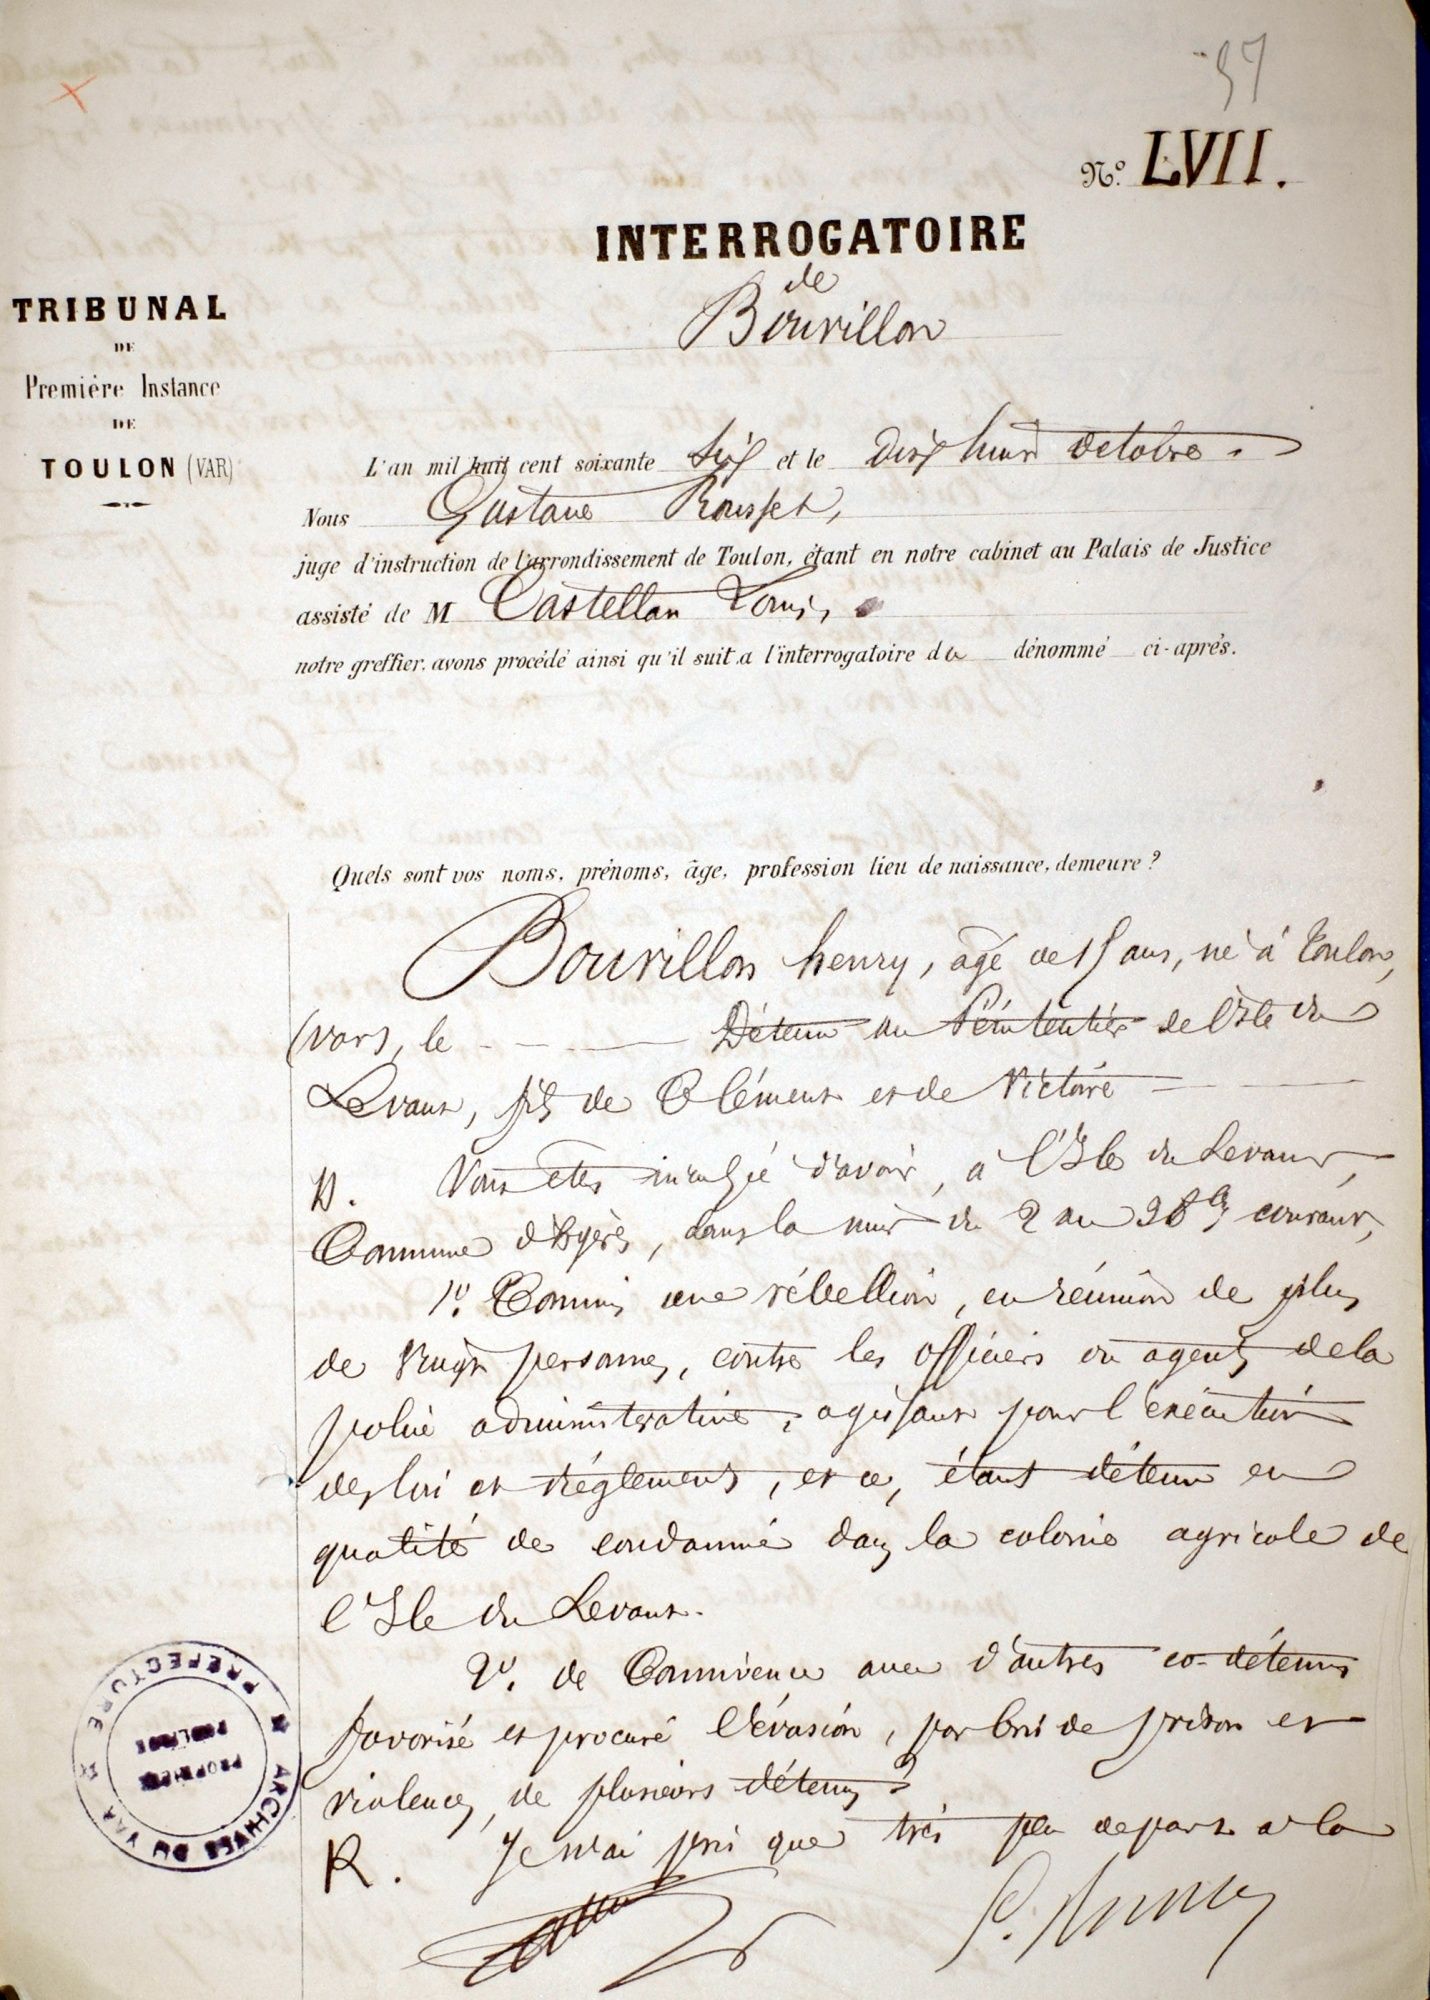 57
N.º LVII.
INTERROGATOIRE
de
Bouvillon
TRIBUNAL
DE
Première Instance
DE
TOULON (VAR)
L'an mil huit cent soixante six et le dix huit octobre
Nous Gustave Rousset,
juge d'instruction de l'arrondissement de Toulon, étant en notre cabinet au Palais de Justice
assisté de M Castellan Louis,
notre greffier, avons procédé ainsi qu'il suit a l'interrogatoire du dénommé ci-après.
Quels sont vos noms, prénoms, âge, profession lieu de naissance, demeure ?
Bouvillon henry, âgé de ans, né à Toulon,
(Var), le Détenu au Pénitentier de l'Isle du
Levant, fils de Clément et de Victoire
D. Vous êtes inculpé d'avoir, à l'Isle du Levant,
Commune d'hyères, dans la nuit du 2 au 3 8bre courant,
1º. Commis une rébellion, en réunion de plus
de vingt personnes, contre les officiers ou agents de la
police administrative, agissant pour l'exécution
des lois et réglements, et ce, étant détenu en
qualité de condamné dans la colonie agricole de
l'Isle du Levant.
2º. de Connivence avec d'autres co-détenus
favorisé et procuré l'évasion, par bris de prison et
violences, de plusieurs détenus ?
R. Je n'ai pris que très peu de part à la
PREFECTURE
ARCHIVES DU VAR
PROPRIÉTÉ
PUBLIQUE